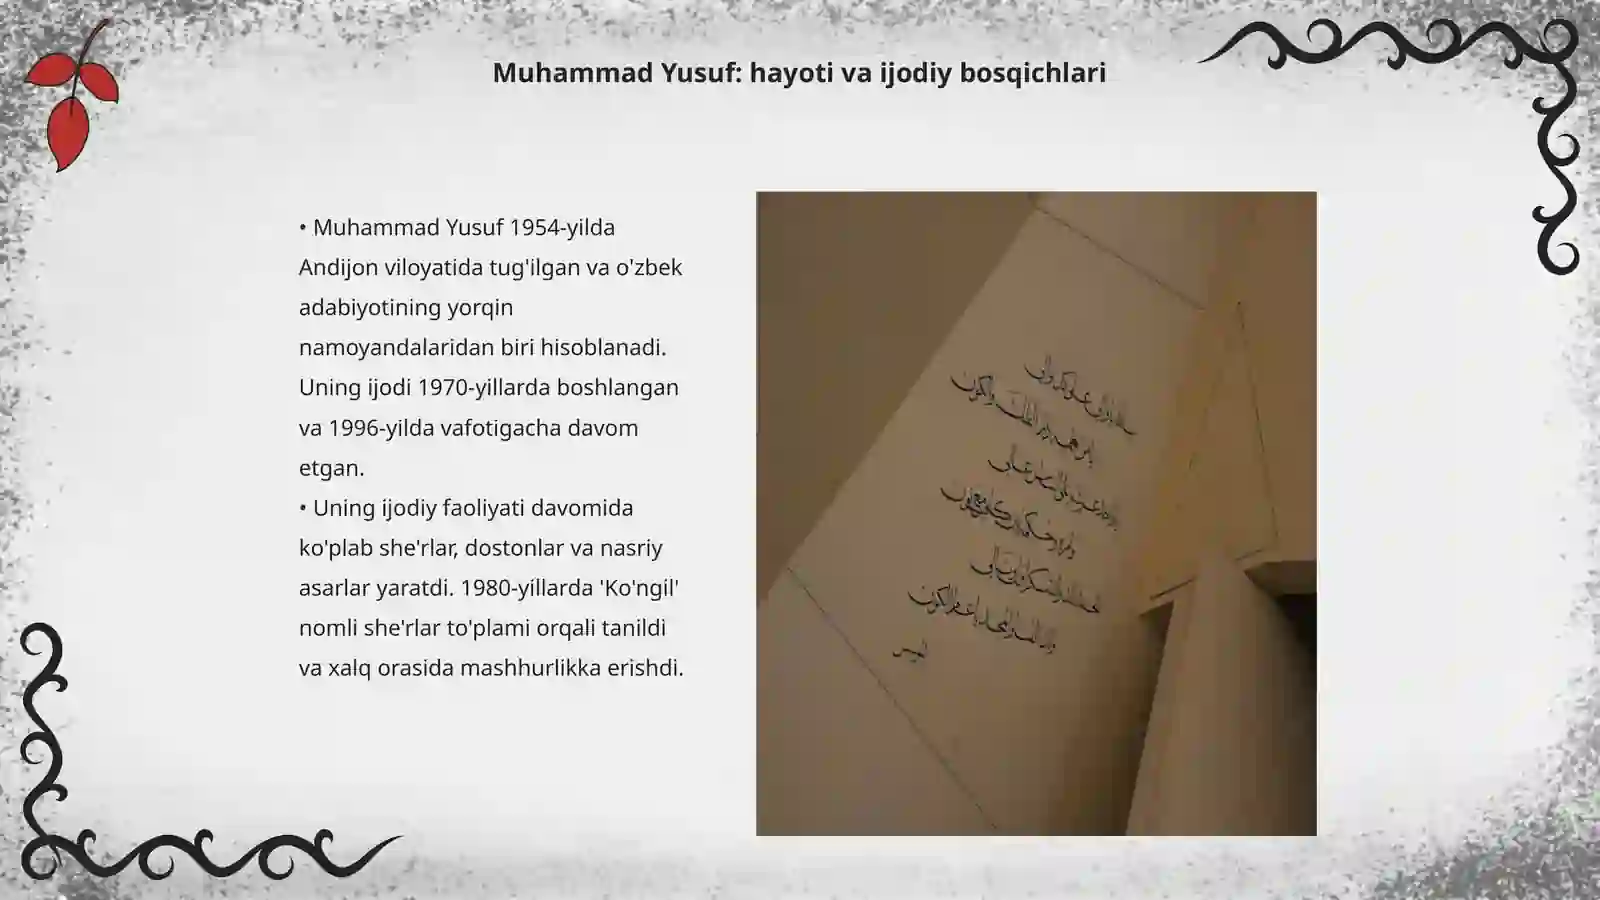 Muhammad Yusuf: hayoti va ijodiy bosqichlari
• Muhammad Yusuf 1954-yilda
Andijon viloyatida tug'ilgan va o'zbek
adabiyotining yorqin
namoyandalaridan biri hisoblanadi.
Uning ijodi 1970-yillarda boshlangan
va 1996-yilda vafotigacha davom
etgan.
• Uning ijodiy faoliyati davomida
ko'plab she'rlar, dostonlar va nasriy
asarlar yaratdi. 1980-yillarda 'Ko'ngil'
nomli she'rlar to'plami orqali tanildi
va xalq orasida mashhurlikka erishdi.